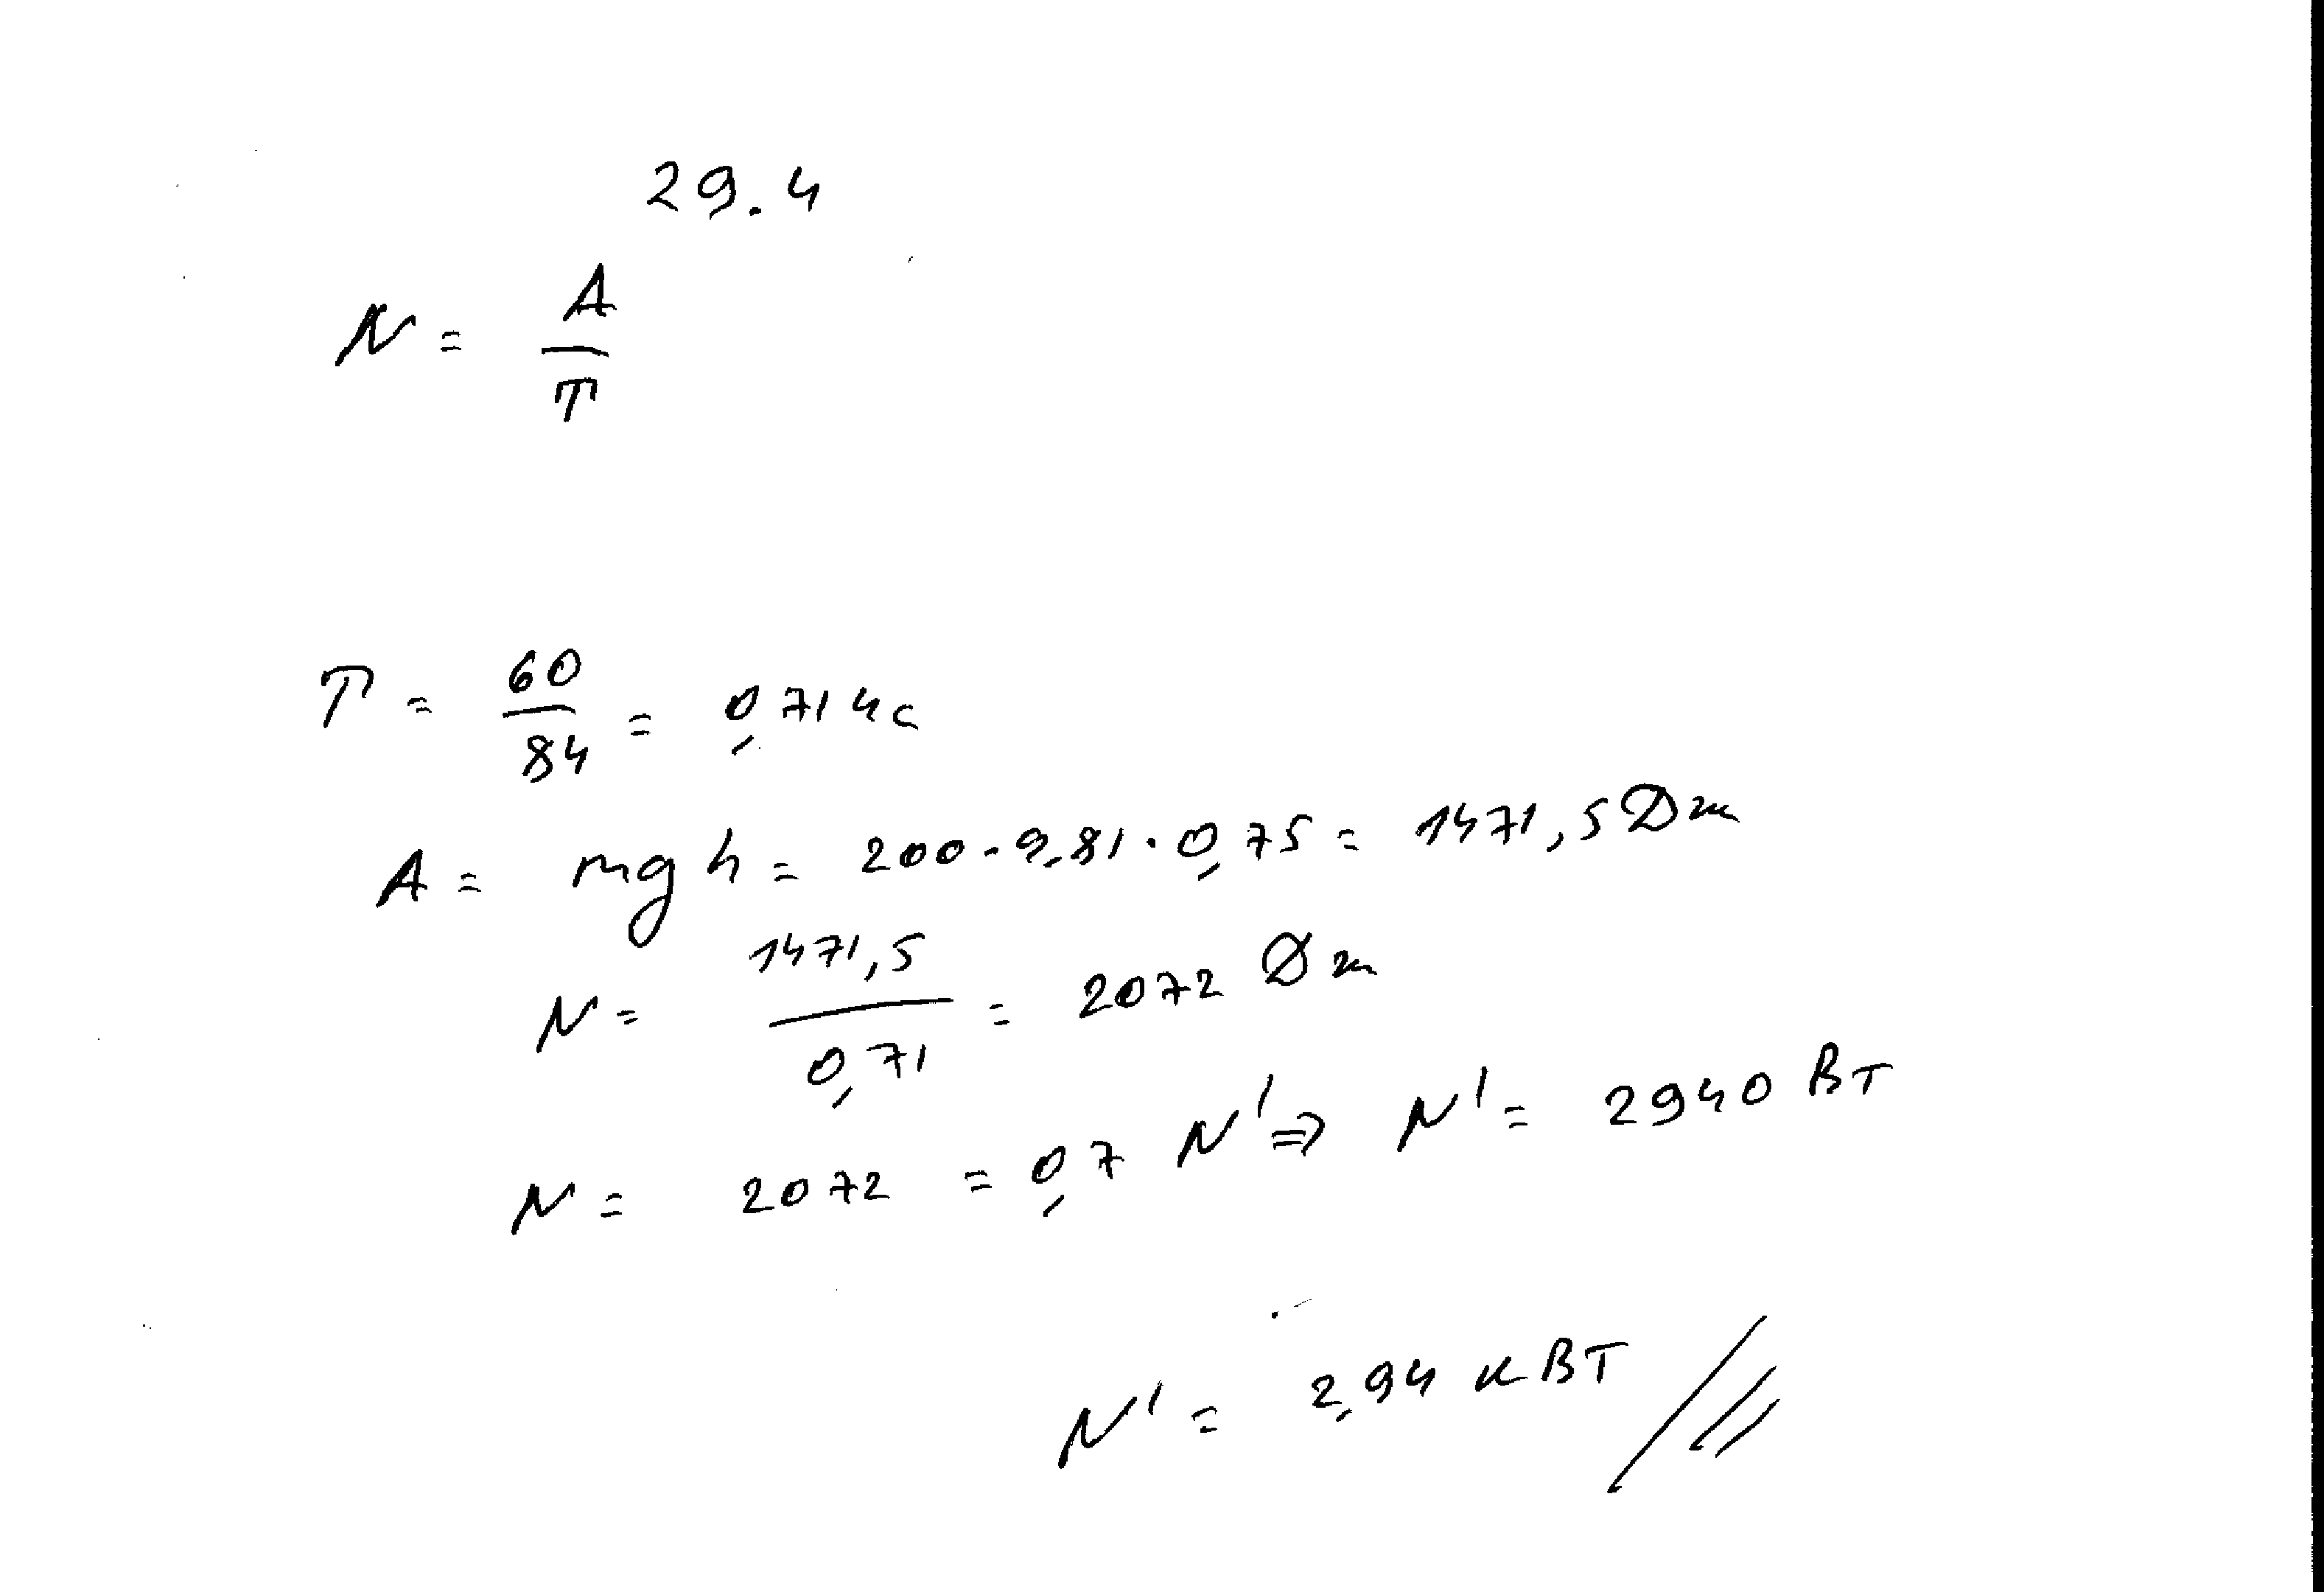 29.4
N = A/T
T = 60/84 = 0,714 с
A = mgh = 200 · 9,81 · 0,75 = 1471,5 Дж
N = 1471,5/0,71 = 2072 Дж
N = 2072 = 0,7 N' ⇒ N' = 2940 Вт
N' = 2,94 кВт